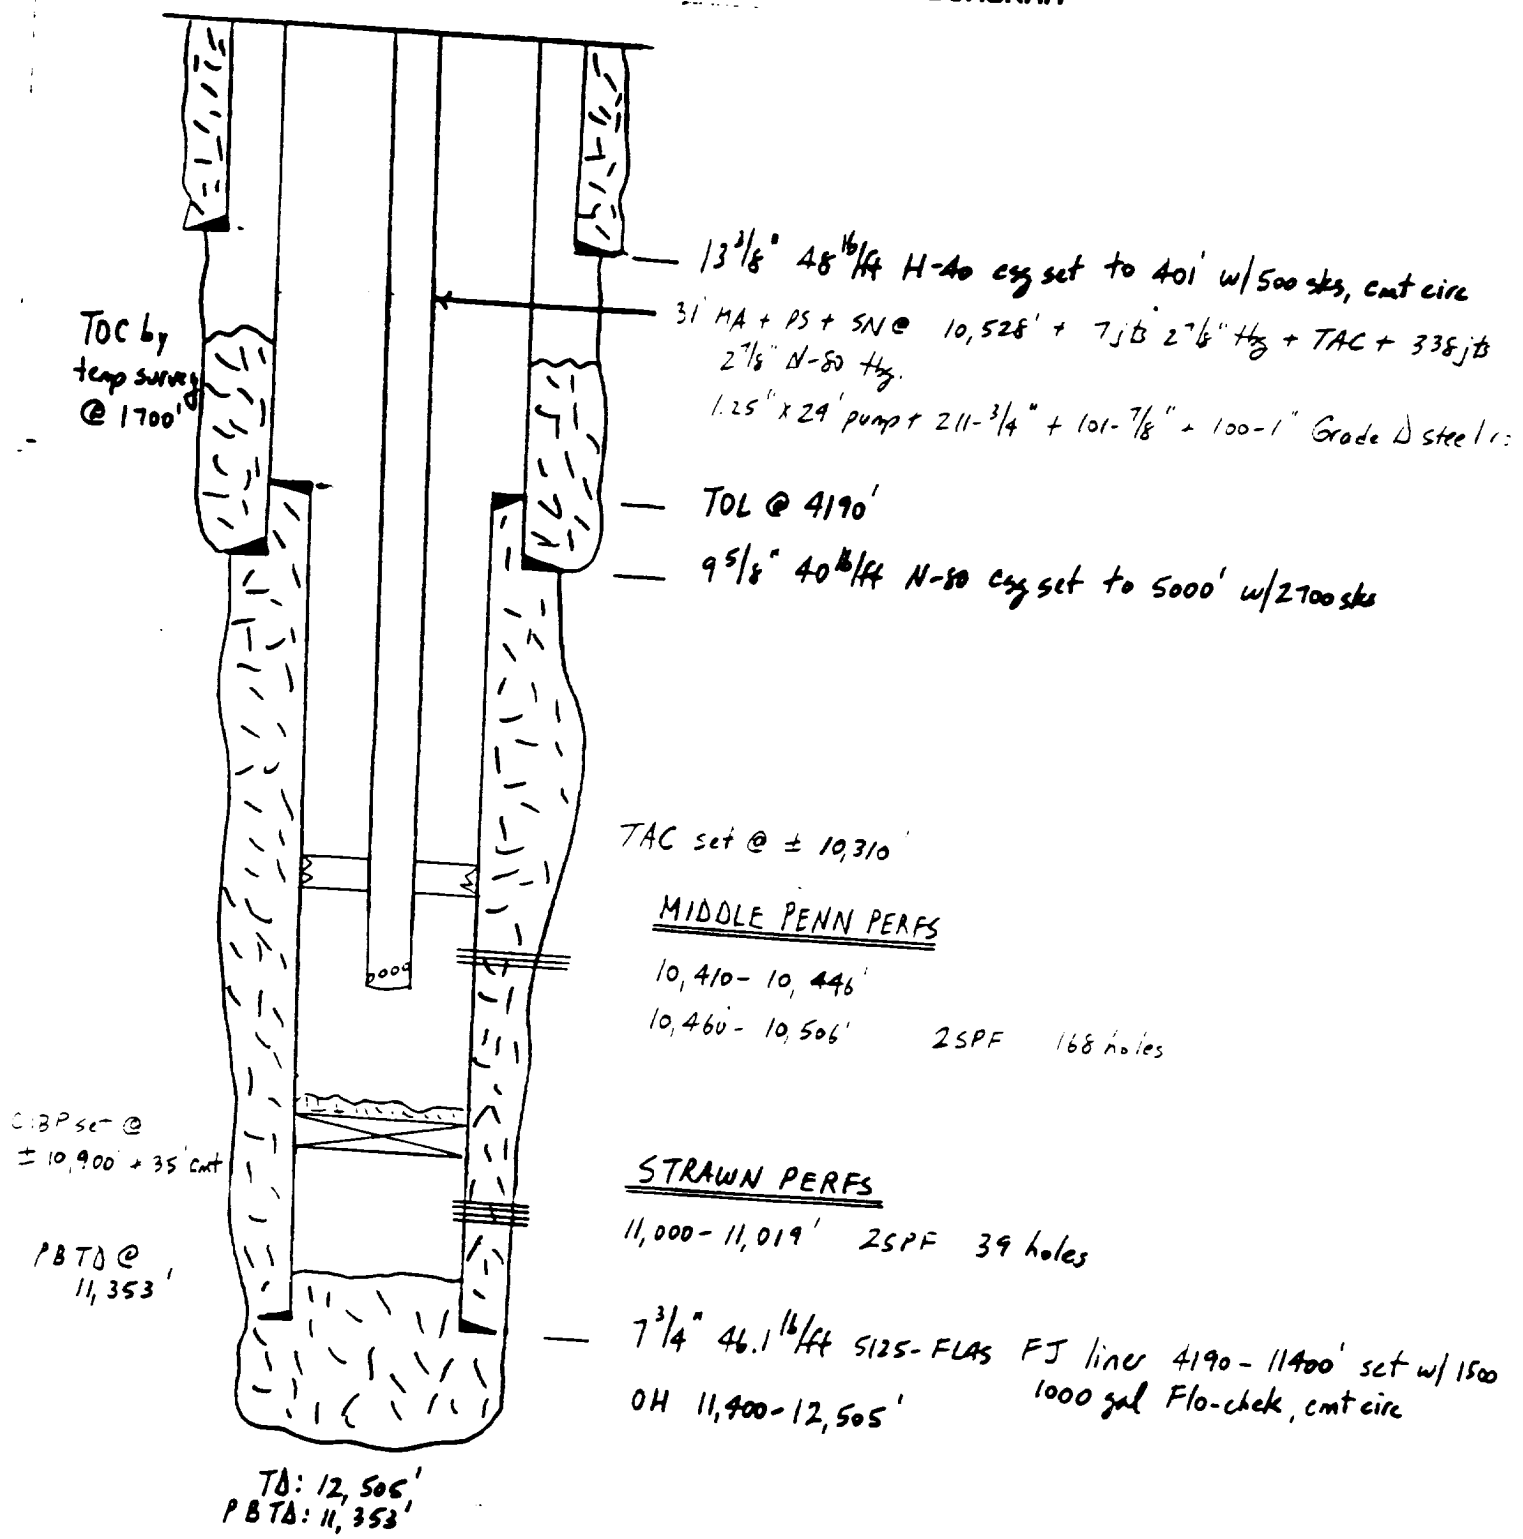 13 3/8" 48 lb/ft H-40 csg set to 401' w/500 sks, cmt circ
31' MA + PS + SN @ 10,528' + 7 jts 2 7/8" tbg + TAC + 338 jts
2 7/8" N-80 tbg.
1.25" x 24' pump + 211-3/4" + 101-7/8" + 100-1" Grade D steel
TOC by
temp survey
@ 1700'
TOL @ 4190'
9 5/8" 40 lb/ft N-80 csg set to 5000' w/2700 sks
TAC set @ ± 10,310'
MIDDLE PENN PERFS
10,410 - 10,446'
10,460 - 10,506' 2SPF 168 holes
CIBP set @
± 10,900' + 35' cmt
STRAWN PERFS
11,000 - 11,019' 2SPF 39 holes
PBTD @
11,353'
7 3/4" 46.1 lb/ft S125- FJ liner 4190 - 11400' set w/ 1500
1000 gal Flo-chek, cmt circ
OH 11,400 - 12,505'
TD: 12,505'
PBTD: 11,353'